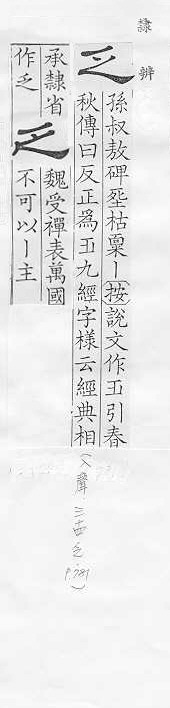 隸辨
乏
孫叔敖碑枯稟丨按說文作引春
秋傳曰反正爲九經字樣云經典相
承隸省
作乏
乏
魏受禪表萬國
不可以丨主
(入聲 三 乏 P.781)